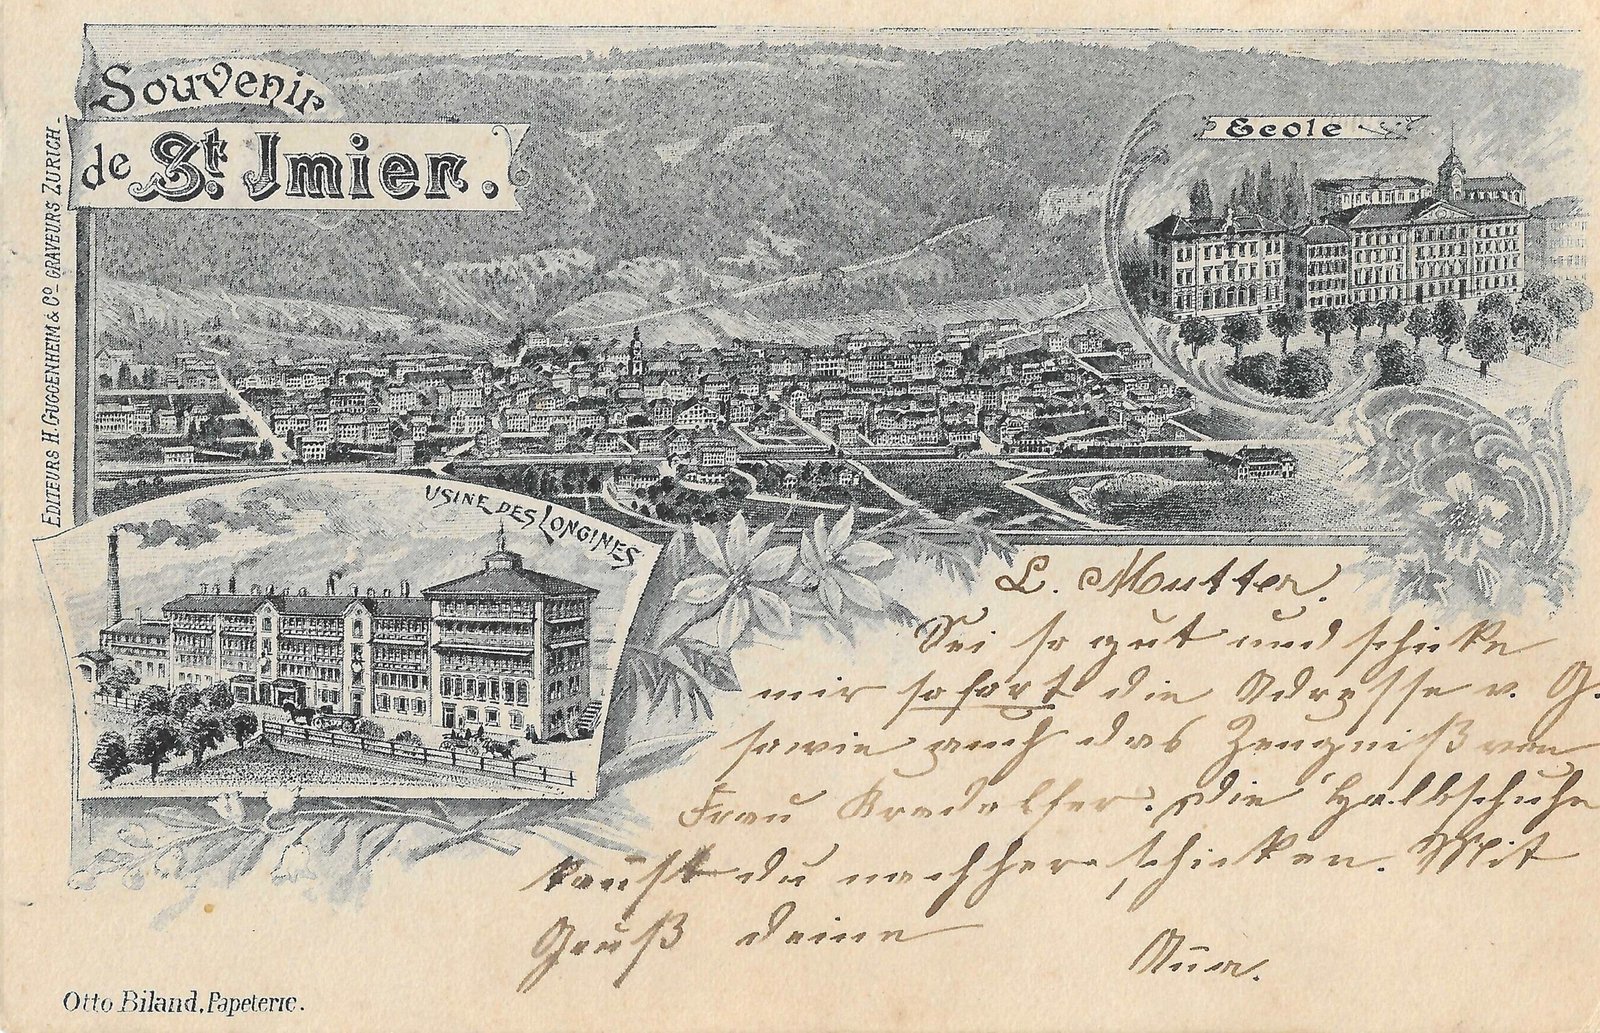 Souvenir
de St. Imier.
Ecole
EDITEURS H. GUGGENHEIM & Co. GRAVEURS ZURICH-
USINE DES LONGINES
L. Mutter.
Sei so gut und schicke
mir sofort die Adresse v. G.
sowie auch das Zeugniß von
Frau. Die Halbschuhe
kannst du nachher schicken. Mit
Gruß deine
Otto Biland, Papeterie.